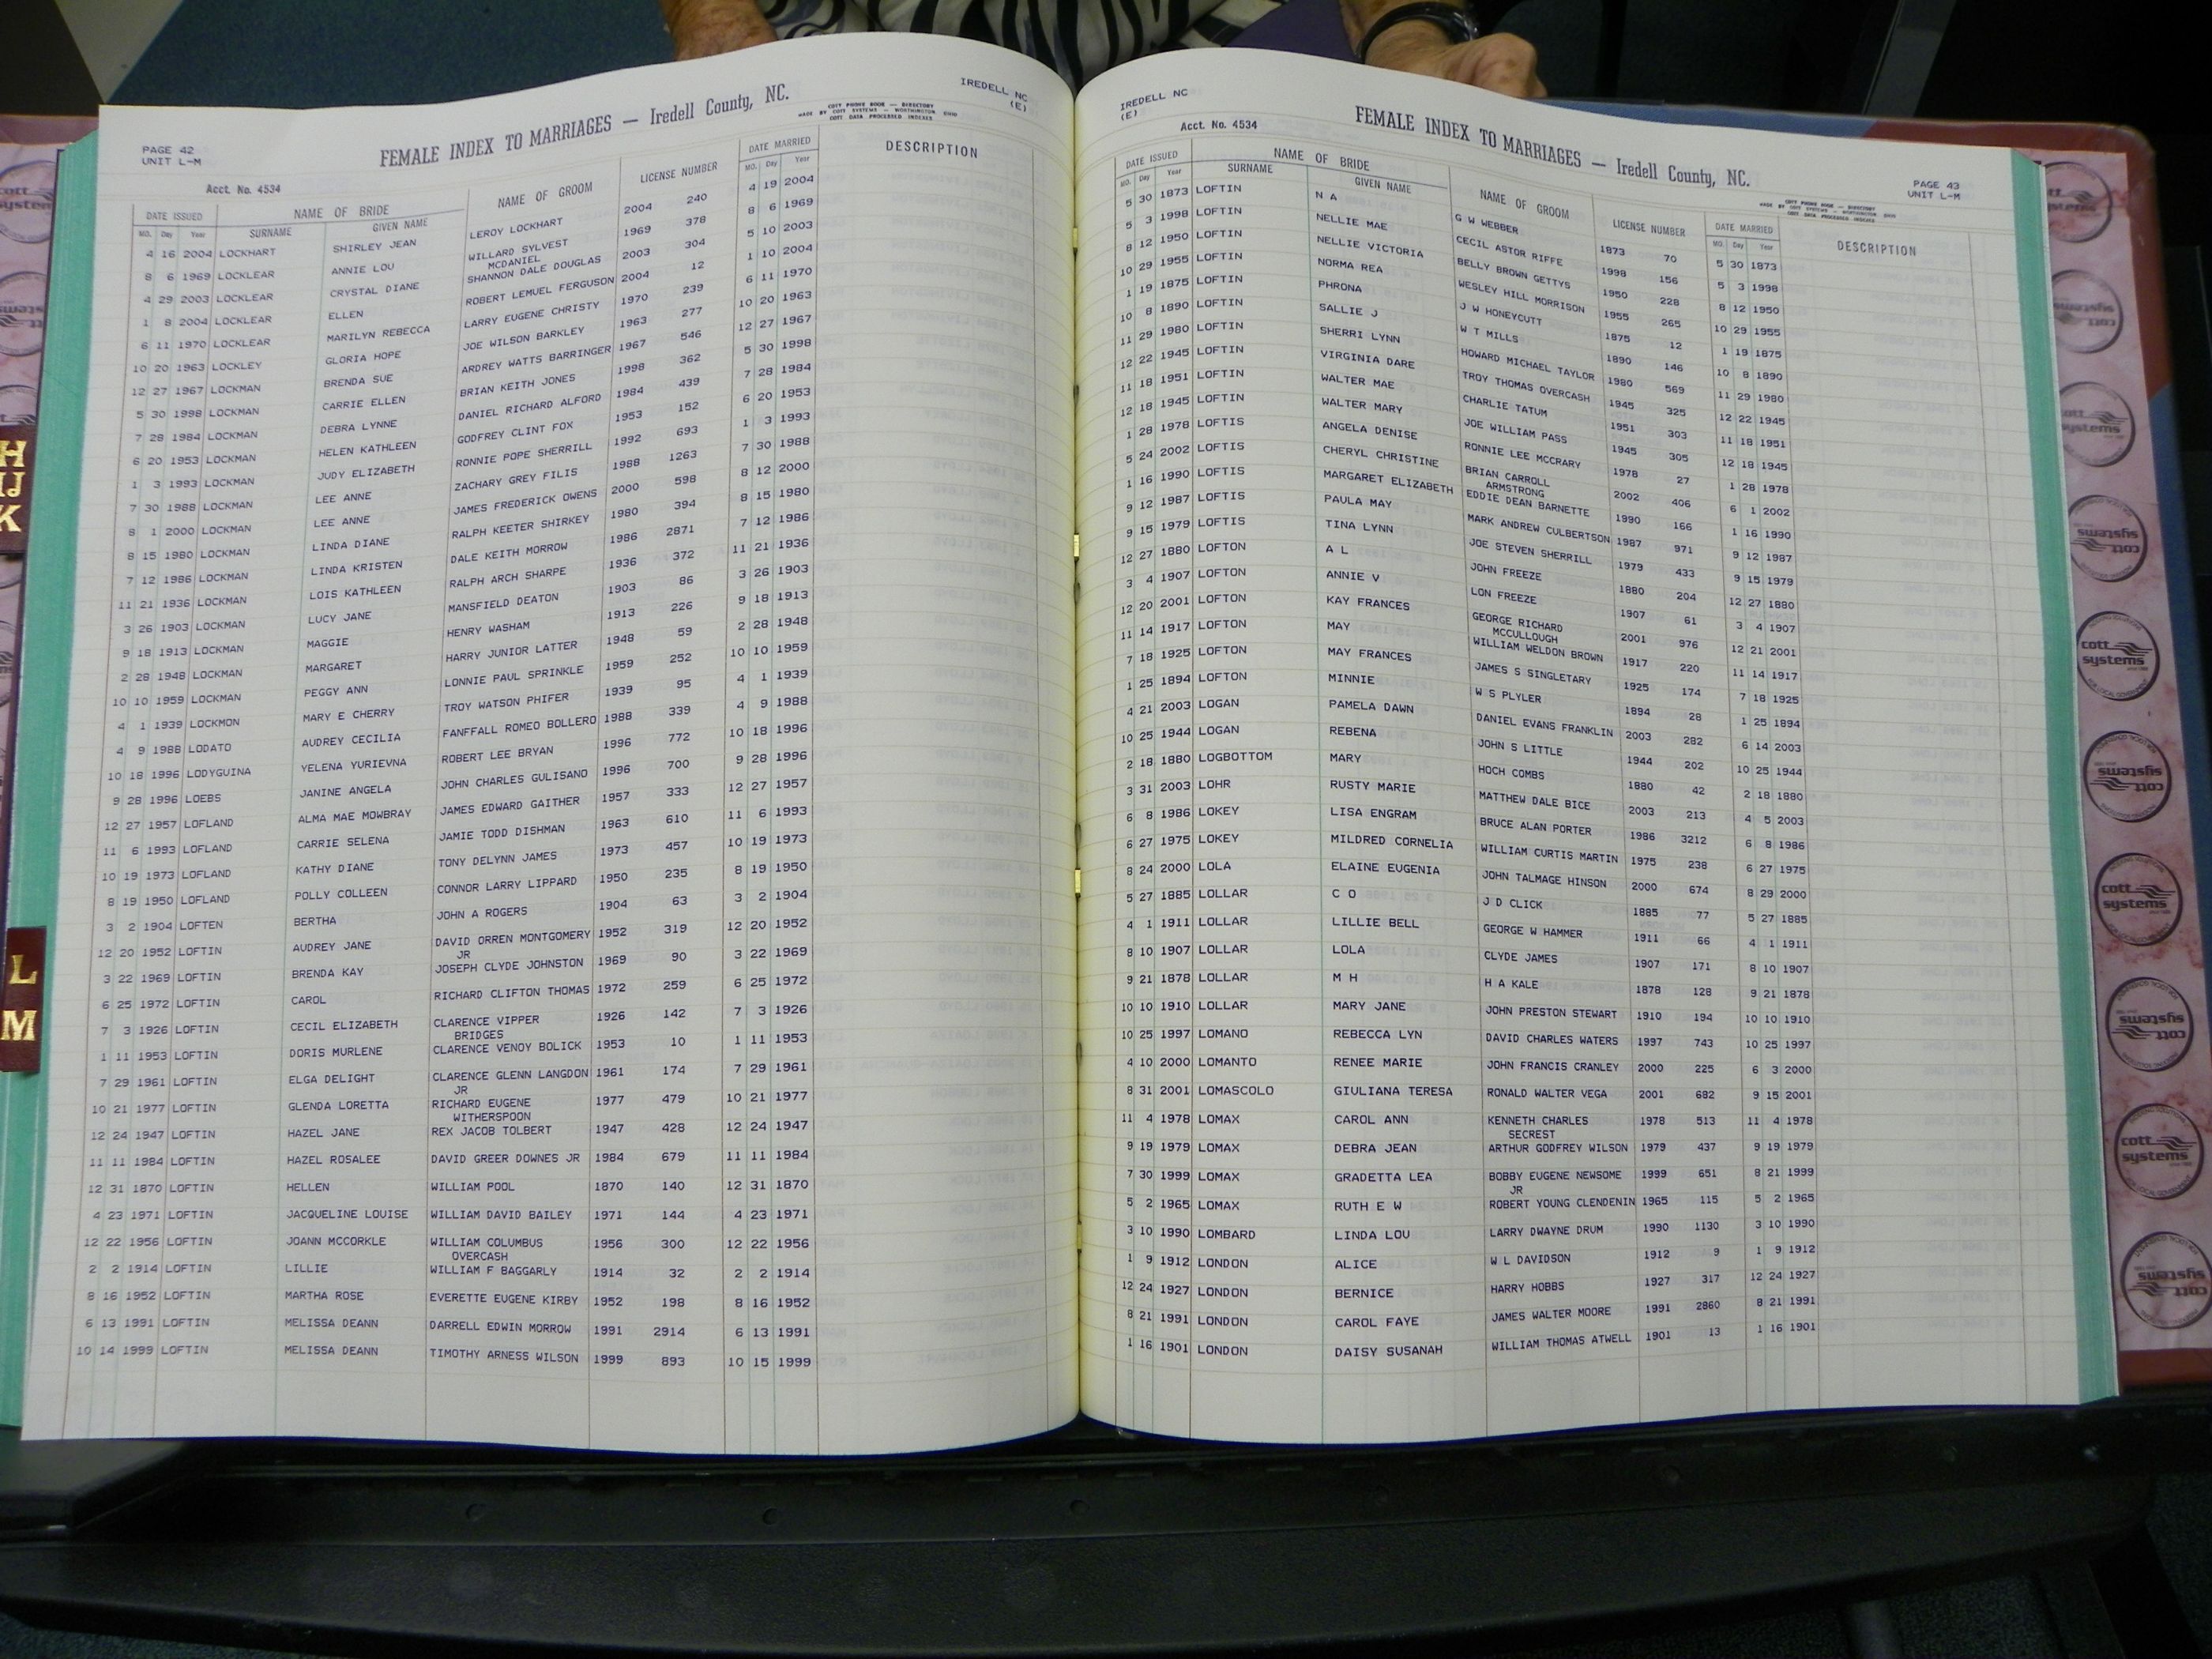 IREDELL NC
(E)
FEMALE INDEX TO MARRIAGES — Iredell County, NC.
COTT PHONE BOOK — DIRECTORY
MADE BY COTT SYSTEMS — WORTHINGTON OHIO
COTT DATA PROCESSED INDEXES
PAGE 42
UNIT L-M
Acct. No. 4534
DATE ISSUED NAME OF BRIDE NAME OF GROOM LICENSE NUMBER DATE MARRIED DESCRIPTION
MO. Day Year SURNAME GIVEN NAME MO. Day Year
4 16 2004 LOCKHART SHIRLEY JEAN LEROY LOCKHART 2004 240 4 19 2004
8 6 1969 LOCKLEAR ANNIE LOU WILLARD SYLVEST 1969 378 8 6 1969
MCDANIEL
4 29 2003 LOCKLEAR CRYSTAL DIANE SHANNON DALE DOUGLAS 2003 304 5 10 2003
1 8 2004 LOCKLEAR ELLEN ROBERT LEMUEL FERGUSON 2004 12 1 10 2004
6 11 1970 LOCKLEAR MARILYN REBECCA LARRY EUGENE CHRISTY 1970 239 6 11 1970
10 20 1963 LOCKLEY GLORIA HOPE JOE WILSON BARKLEY 1963 277 10 20 1963
12 27 1967 LOCKMAN BRENDA SUE ARDREY WATTS BARRINGER 1967 546 12 27 1967
5 30 1998 LOCKMAN CARRIE ELLEN BRIAN KEITH JONES 1998 362 5 30 1998
7 28 1984 LOCKMAN DEBRA LYNNE DANIEL RICHARD ALFORD 1984 439 7 28 1984
6 20 1953 LOCKMAN HELEN KATHLEEN GODFREY CLINT FOX 1953 152 6 20 1953
1 3 1993 LOCKMAN JUDY ELIZABETH RONNIE POPE SHERRILL 1992 693 1 3 1993
7 30 1988 LOCKMAN LEE ANNE ZACHARY GREY FILIS 1988 1263 7 30 1988
8 1 2000 LOCKMAN LEE ANNE JAMES FREDERICK OWENS 2000 598 8 12 2000
8 15 1980 LOCKMAN LINDA DIANE RALPH KEETER SHIRKEY 1980 394 8 15 1980
7 12 1986 LOCKMAN LINDA KRISTEN DALE KEITH MORROW 1986 2871 7 12 1986
11 21 1936 LOCKMAN LOIS KATHLEEN RALPH ARCH SHARPE 1936 372 11 21 1936
3 26 1903 LOCKMAN LUCY JANE MANSFIELD DEATON 1903 86 3 26 1903
9 18 1913 LOCKMAN MAGGIE HENRY WASHAM 1913 226 9 18 1913
2 28 1948 LOCKMAN MARGARET HARRY JUNIOR LATTER 1948 59 2 28 1948
10 10 1959 LOCKMAN PEGGY ANN LONNIE PAUL SPRINKLE 1959 252 10 10 1959
4 1 1939 LOCKMON MARY E CHERRY TROY WATSON PHIFER 1939 95 4 1 1939
4 9 1988 LODATO AUDREY CECILIA FANFFALL ROMEO BOLLERO 1988 339 4 9 1988
10 18 1996 LODYGUINA YELENA YURIEVNA ROBERT LEE BRYAN 1996 772 10 18 1996
9 28 1996 LOEBS JANINE ANGELA JOHN CHARLES GULISANO 1996 700 9 28 1996
12 27 1957 LOFLAND ALMA MAE MOWBRAY JAMES EDWARD GAITHER 1957 333 12 27 1957
11 6 1993 LOFLAND CARRIE SELENA JAMIE TODD DISHMAN 1963 610 11 6 1993
10 19 1973 LOFLAND KATHY DIANE TONY DELYNN JAMES 1973 457 10 19 1973
8 19 1950 LOFLAND POLLY COLLEEN CONNOR LARRY LIPPARD 1950 235 8 19 1950
3 2 1904 LOFTEN BERTHA JOHN A ROGERS 1904 63 3 2 1904
12 20 1952 LOFTIN AUDREY JANE DAVID ORREN MONTGOMERY 1952 319 12 20 1952
JR
3 22 1969 LOFTIN BRENDA KAY JOSEPH CLYDE JOHNSTON 1969 90 3 22 1969
6 25 1972 LOFTIN CAROL RICHARD CLIFTON THOMAS 1972 259 6 25 1972
7 3 1926 LOFTIN CECIL ELIZABETH CLARENCE VIPPER 1926 142 7 3 1926
BRIDGES
1 11 1953 LOFTIN DORIS MURLENE CLARENCE VENOY BOLICK 1953 10 1 11 1953
7 29 1961 LOFTIN ELGA DELIGHT CLARENCE GLENN LANGDON 1961 174 7 29 1961
JR
10 21 1977 LOFTIN GLENDA LORETTA RICHARD EUGENE 1977 479 10 21 1977
WITHERSPOON
12 24 1947 LOFTIN HAZEL JANE REX JACOB TOLBERT 1947 428 12 24 1947
11 11 1984 LOFTIN HAZEL ROSALEE DAVID GREER DOWNES JR 1984 679 11 11 1984
12 31 1870 LOFTIN HELLEN WILLIAM POOL 1870 140 12 31 1870
4 23 1971 LOFTIN JACQUELINE LOUISE WILLIAM DAVID BAILEY 1971 144 4 23 1971
12 22 1956 LOFTIN JOANN MCCORKLE WILLIAM COLUMBUS 1956 300 12 22 1956
OVERCASH
2 2 1914 LOFTIN LILLIE WILLIAM F BAGGARLY 1914 32 2 2 1914
8 16 1952 LOFTIN MARTHA ROSE EVERETTE EUGENE KIRBY 1952 198 8 16 1952
6 13 1991 LOFTIN MELISSA DEANN DARRELL EDWIN MORROW 1991 2914 6 13 1991
10 14 1999 LOFTIN MELISSA DEANN TIMOTHY ARNESS WILSON 1999 893 10 15 1999
IREDELL NC
(E)
Acct. No. 4534
FEMALE INDEX TO MARRIAGES — Iredell County, NC.
PAGE 43
UNIT L-M
COTT PHONE BOOK — DIRECTORY
MADE BY COTT SYSTEMS — WORTHINGTON OHIO
COTT DATA PROCESSED INDEXES
DATE ISSUED NAME OF BRIDE NAME OF GROOM LICENSE NUMBER DATE MARRIED DESCRIPTION
MO. Day Year SURNAME GIVEN NAME MO. Day Year
5 30 1873 LOFTIN N A G W WEBBER 1873 70 5 30 1873
5 3 1998 LOFTIN NELLIE MAE CECIL ASTOR RIFFE 1998 156 5 3 1998
8 12 1950 LOFTIN NELLIE VICTORIA BELLY BROWN GETTYS 1950 228 8 12 1950
10 29 1955 LOFTIN NORMA REA WESLEY HILL MORRISON 1955 265 10 29 1955
1 19 1875 LOFTIN PHRONA J W HONEYCUTT 1875 12 1 19 1875
10 8 1890 LOFTIN SALLIE J W T MILLS 1890 146 10 8 1890
11 29 1980 LOFTIN SHERRI LYNN HOWARD MICHAEL TAYLOR 1980 569 11 29 1980
12 22 1945 LOFTIN VIRGINIA DARE TROY THOMAS OVERCASH 1945 325 12 22 1945
11 18 1951 LOFTIN WALTER MAE CHARLIE TATUM 1951 303 11 18 1951
12 18 1945 LOFTIN WALTER MARY JOE WILLIAM PASS 1945 305 12 18 1945
1 28 1978 LOFTIS ANGELA DENISE RONNIE LEE MCCRARY 1978 27 1 28 1978
5 24 2002 LOFTIS CHERYL CHRISTINE BRIAN CARROLL 2002 406 6 1 2002
ARMSTRONG
1 16 1990 LOFTIS MARGARET ELIZABETH EDDIE DEAN BARNETTE 1990 166 1 16 1990
9 12 1987 LOFTIS PAULA MAY MARK ANDREW CULBERTSON 1987 971 9 12 1987
9 15 1979 LOFTIS TINA LYNN JOE STEVEN SHERRILL 1979 433 9 15 1979
12 27 1880 LOFTON A L JOHN FREEZE 1880 204 12 27 1880
3 4 1907 LOFTON ANNIE V LON FREEZE 1907 61 3 4 1907
12 20 2001 LOFTON KAY FRANCES GEORGE RICHARD 2001 976 12 21 2001
MCCULLOUGH
11 14 1917 LOFTON MAY WILLIAM WELDON BROWN 1917 220 11 14 1917
7 18 1925 LOFTON MAY FRANCES JAMES S SINGLETARY 1925 174 7 18 1925
1 25 1894 LOFTON MINNIE W S PLYLER 1894 28 1 25 1894
4 21 2003 LOGAN PAMELA DAWN DANIEL EVANS FRANKLIN 2003 282 6 14 2003
10 25 1944 LOGAN REBENA JOHN S LITTLE 1944 202 10 25 1944
2 18 1880 LOGBOTTOM MARY HOCH COMBS 1880 42 2 18 1880
3 31 2003 LOHR RUSTY MARIE MATTHEW DALE BICE 2003 213 4 5 2003
6 8 1986 LOKEY LISA ENGRAM BRUCE ALAN PORTER 1986 3212 6 8 1986
6 27 1975 LOKEY MILDRED CORNELIA WILLIAM CURTIS MARTIN 1975 238 6 27 1975
8 24 2000 LOLA ELAINE EUGENIA JOHN TALMAGE HINSON 2000 674 8 29 2000
5 27 1885 LOLLAR C O J D CLICK 1885 77 5 27 1885
4 1 1911 LOLLAR LILLIE BELL GEORGE W HAMMER 1911 66 4 1 1911
8 10 1907 LOLLAR LOLA CLYDE JAMES 1907 171 8 10 1907
9 21 1878 LOLLAR M H H A KALE 1878 128 9 21 1878
10 10 1910 LOLLAR MARY JANE JOHN PRESTON STEWART 1910 194 10 10 1910
10 25 1997 LOMANO REBECCA LYN DAVID CHARLES WATERS 1997 743 10 25 1997
4 10 2000 LOMANTO RENEE MARIE JOHN FRANCIS CRANLEY 2000 225 6 3 2000
8 31 2001 LOMASCOLO GIULIANA TERESA RONALD WALTER VEGA 2001 682 9 15 2001
11 4 1978 LOMAX CAROL ANN KENNETH CHARLES 1978 513 11 4 1978
SECREST
9 19 1979 LOMAX DEBRA JEAN ARTHUR GODFREY WILSON 1979 437 9 19 1979
7 30 1999 LOMAX GRADETTA LEA BOBBY EUGENE NEWSOME 1999 651 8 21 1999
JR
5 2 1965 LOMAX RUTH E W ROBERT YOUNG CLENDENIN 1965 115 5 2 1965
3 10 1990 LOMBARD LINDA LOU LARRY DWAYNE DRUM 1990 1130 3 10 1990
1 9 1912 LONDON ALICE W L DAVIDSON 1912 9 1 9 1912
12 24 1927 LONDON BERNICE HARRY HOBBS 1927 317 12 24 1927
8 21 1991 LONDON CAROL FAYE JAMES WALTER MOORE 1991 2860 8 21 1991
1 16 1901 LONDON DAISY SUSANAH WILLIAM THOMAS ATWELL 1901 13 1 16 1901
H
IJ
K
L
M
cott
systems